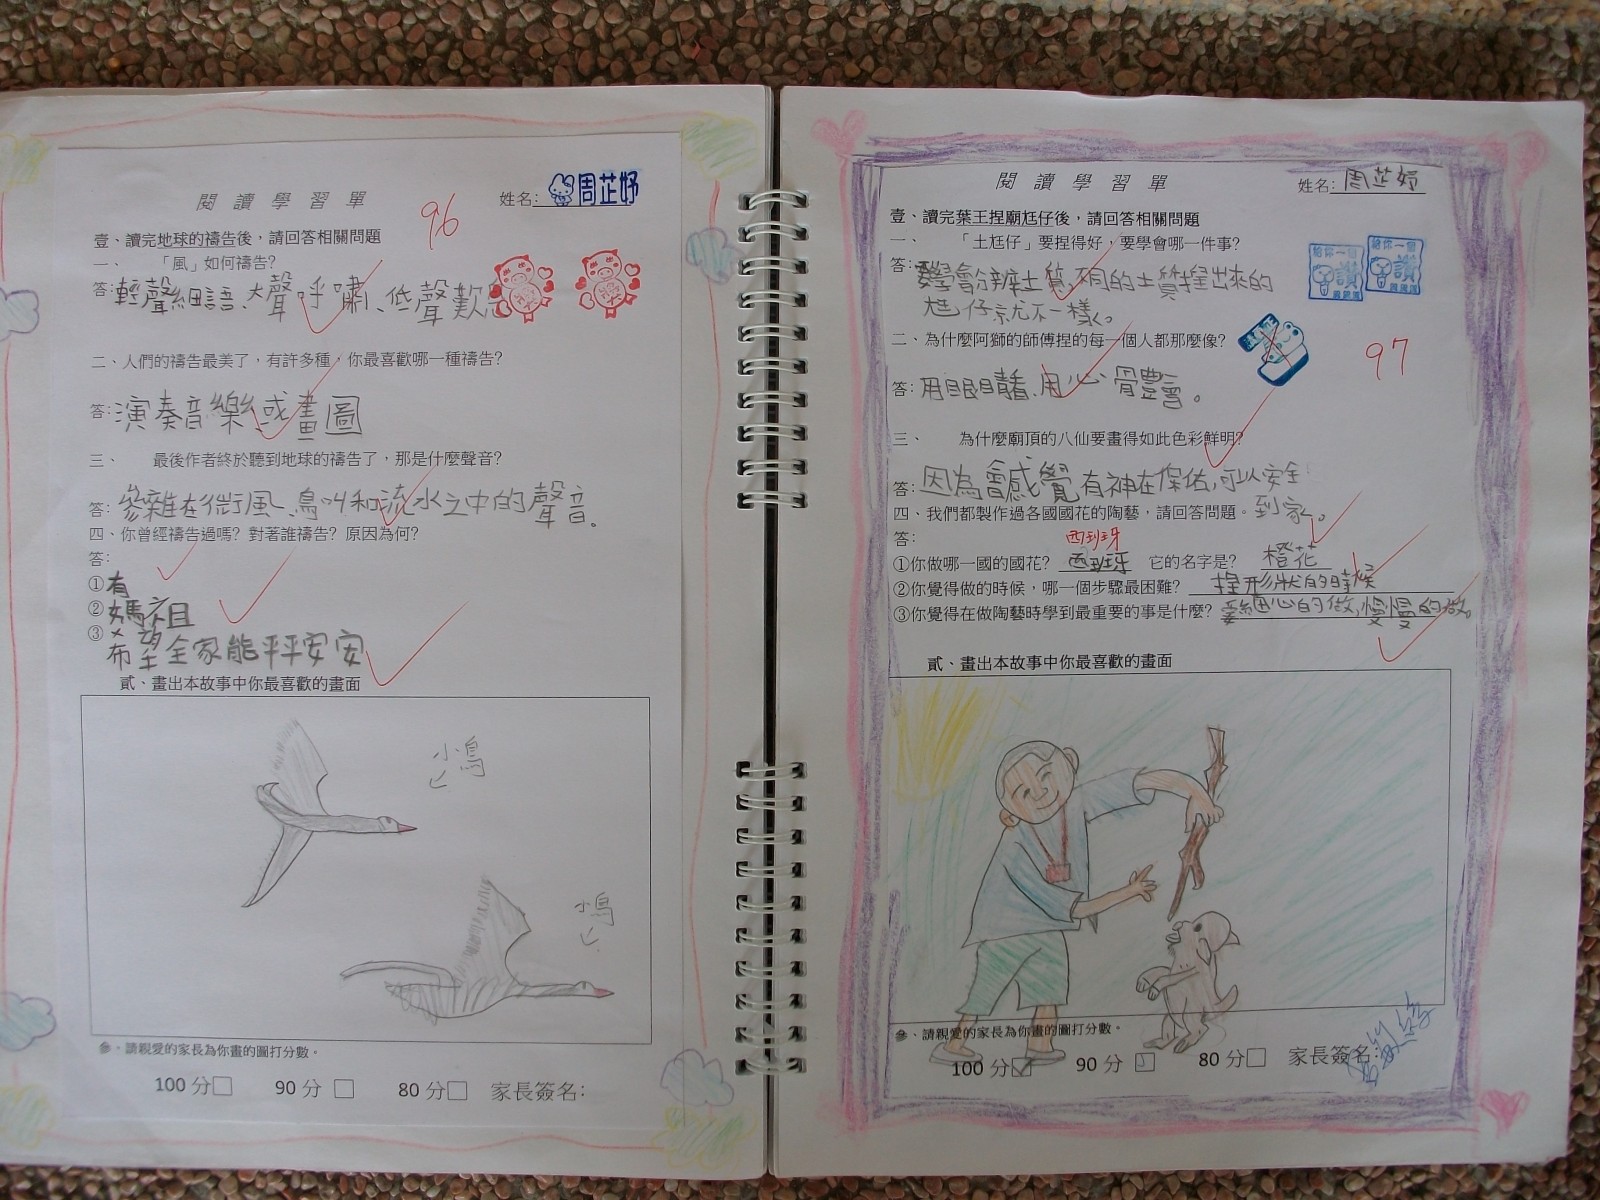 閱讀學習單
96
姓名:周芷妤
壹、讀完地球的禱告後，請回答相關問題
一、 「風」如何禱告?
答:輕聲細語、大聲呼嘯、低聲歎
二、人們的禱告最美了，有許多種，你最喜歡哪一種禱告?
答:演奏音樂或畫圖
三、 最後作者終於聽到地球的禱告了，那是什麼聲音?
答:參雜在微風、鳥叫和流水之中的聲音。
四、你曾經禱告過嗎? 對著誰禱告? 原因為何?
答:
①有
②媽祖
③希望全家能平平安安
貳、畫出本故事中你最喜歡的畫面
小鳥
小鳥
參、請親愛的家長為你畫的圖打分數。
100 分□ 90 分□ 80 分□ 家長簽名:
閱讀學習單
姓名:周芷妤
壹、讀完葉王捏廟尪仔後，請回答相關問題
一、 「土尪仔」要捏得好，要學會哪一件事?
答:學會分辨土質,不同的土質捏出來的
尪仔就不一樣。
給你一個讚
給你一個讚
二、為什麼阿獅的師傅捏的每一個人都那麼像?
97
答:用眼睛看、用心體會。
三、 為什麼廟頂的八仙要畫得如此色彩鮮明?
答:因為會感覺有神在保佑,可以安全
到家。
四、我們都製作過各國國花的陶藝，請回答問題。
答:
西班牙
①你做哪一國的國花? 西班牙 它的名字是? 橙花
②你覺得做的時候，哪一個步驟最困難? 捏形狀的時候
③你覺得在做陶藝時學到最重要的事是什麼? 要細心的做,慢慢的做。
貳、畫出本故事中你最喜歡的畫面
參、請親愛的家長為你畫的圖打分數。
100 分☑ 90 分□ 80 分□ 家長簽名: